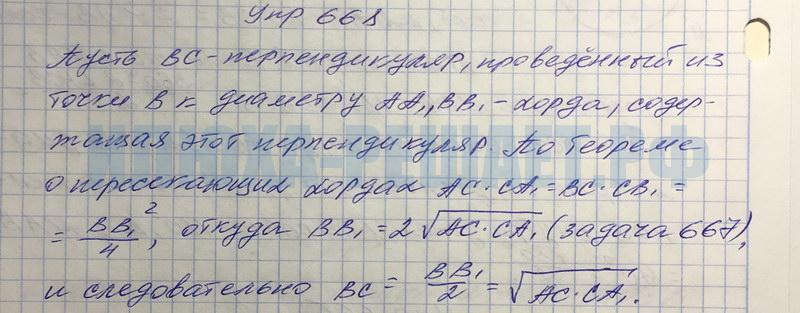 Упр 668
Пусть BC - перпендикуляр, проведённый из
точки B к диаметру AA₁, BB₁ - хорда, содер-
жащая этот перпендикуляр. По теореме
о пересекающих хордах AC·CA₁ = BC·CB₁ =
= BB₁²/4, откуда BB₁ = 2√AC·CA₁ (задача 667),
и следовательно BC = BB₁/2 = √AC·CA₁.